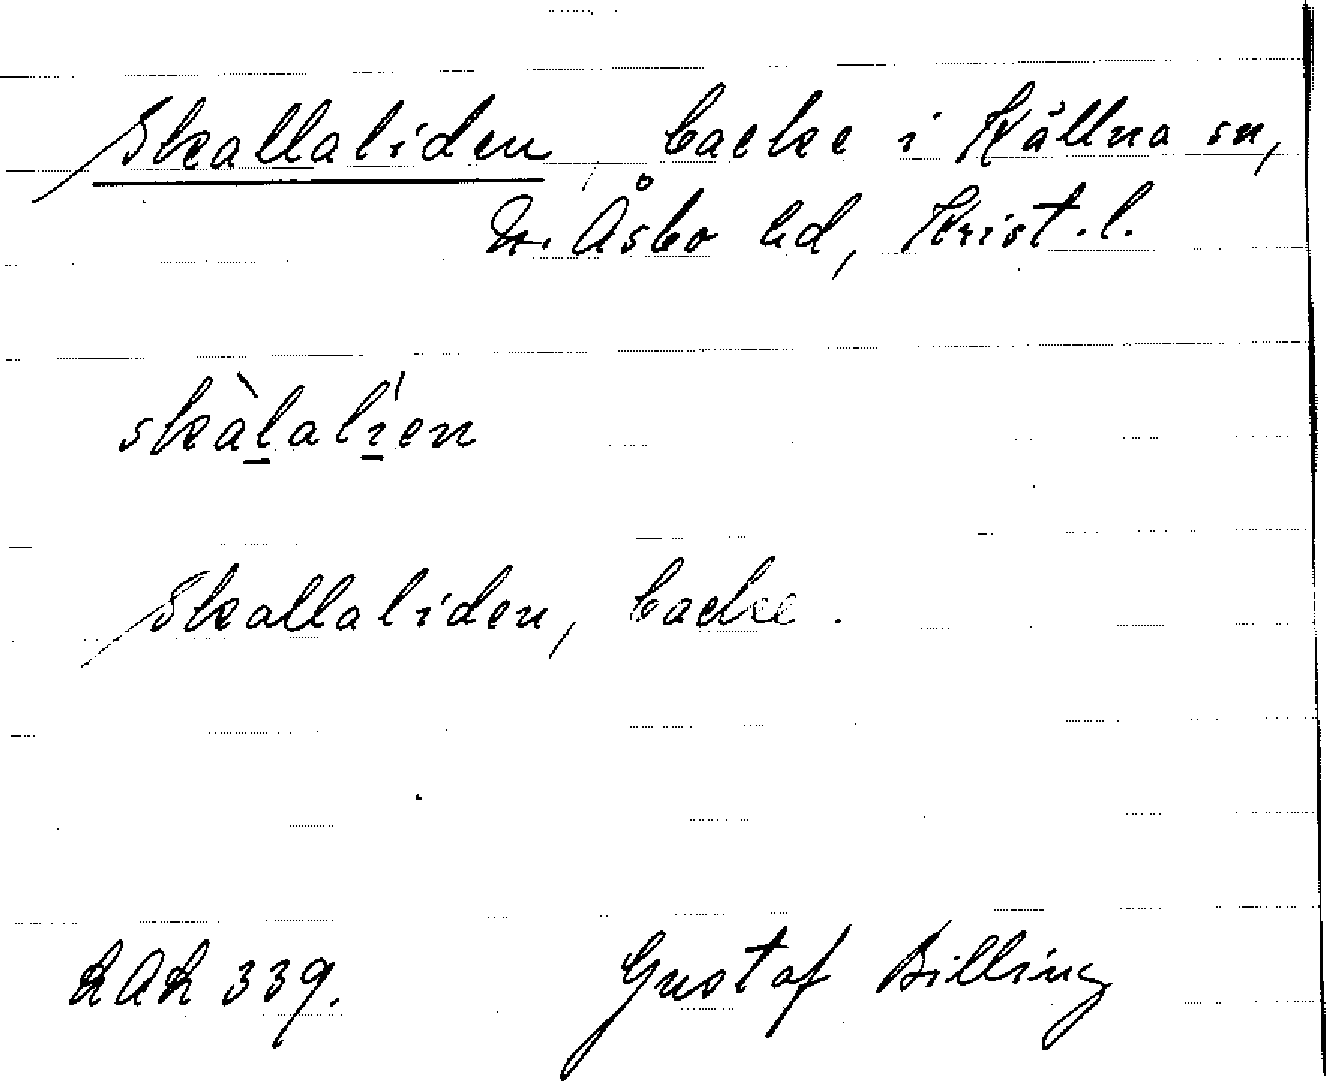 Skallaliden, backe i Källna sn,
N. Åsbo hd, Krist. l.
skàlalíen
Skallaliden, backe.
LAL 339. Gustaf Billing